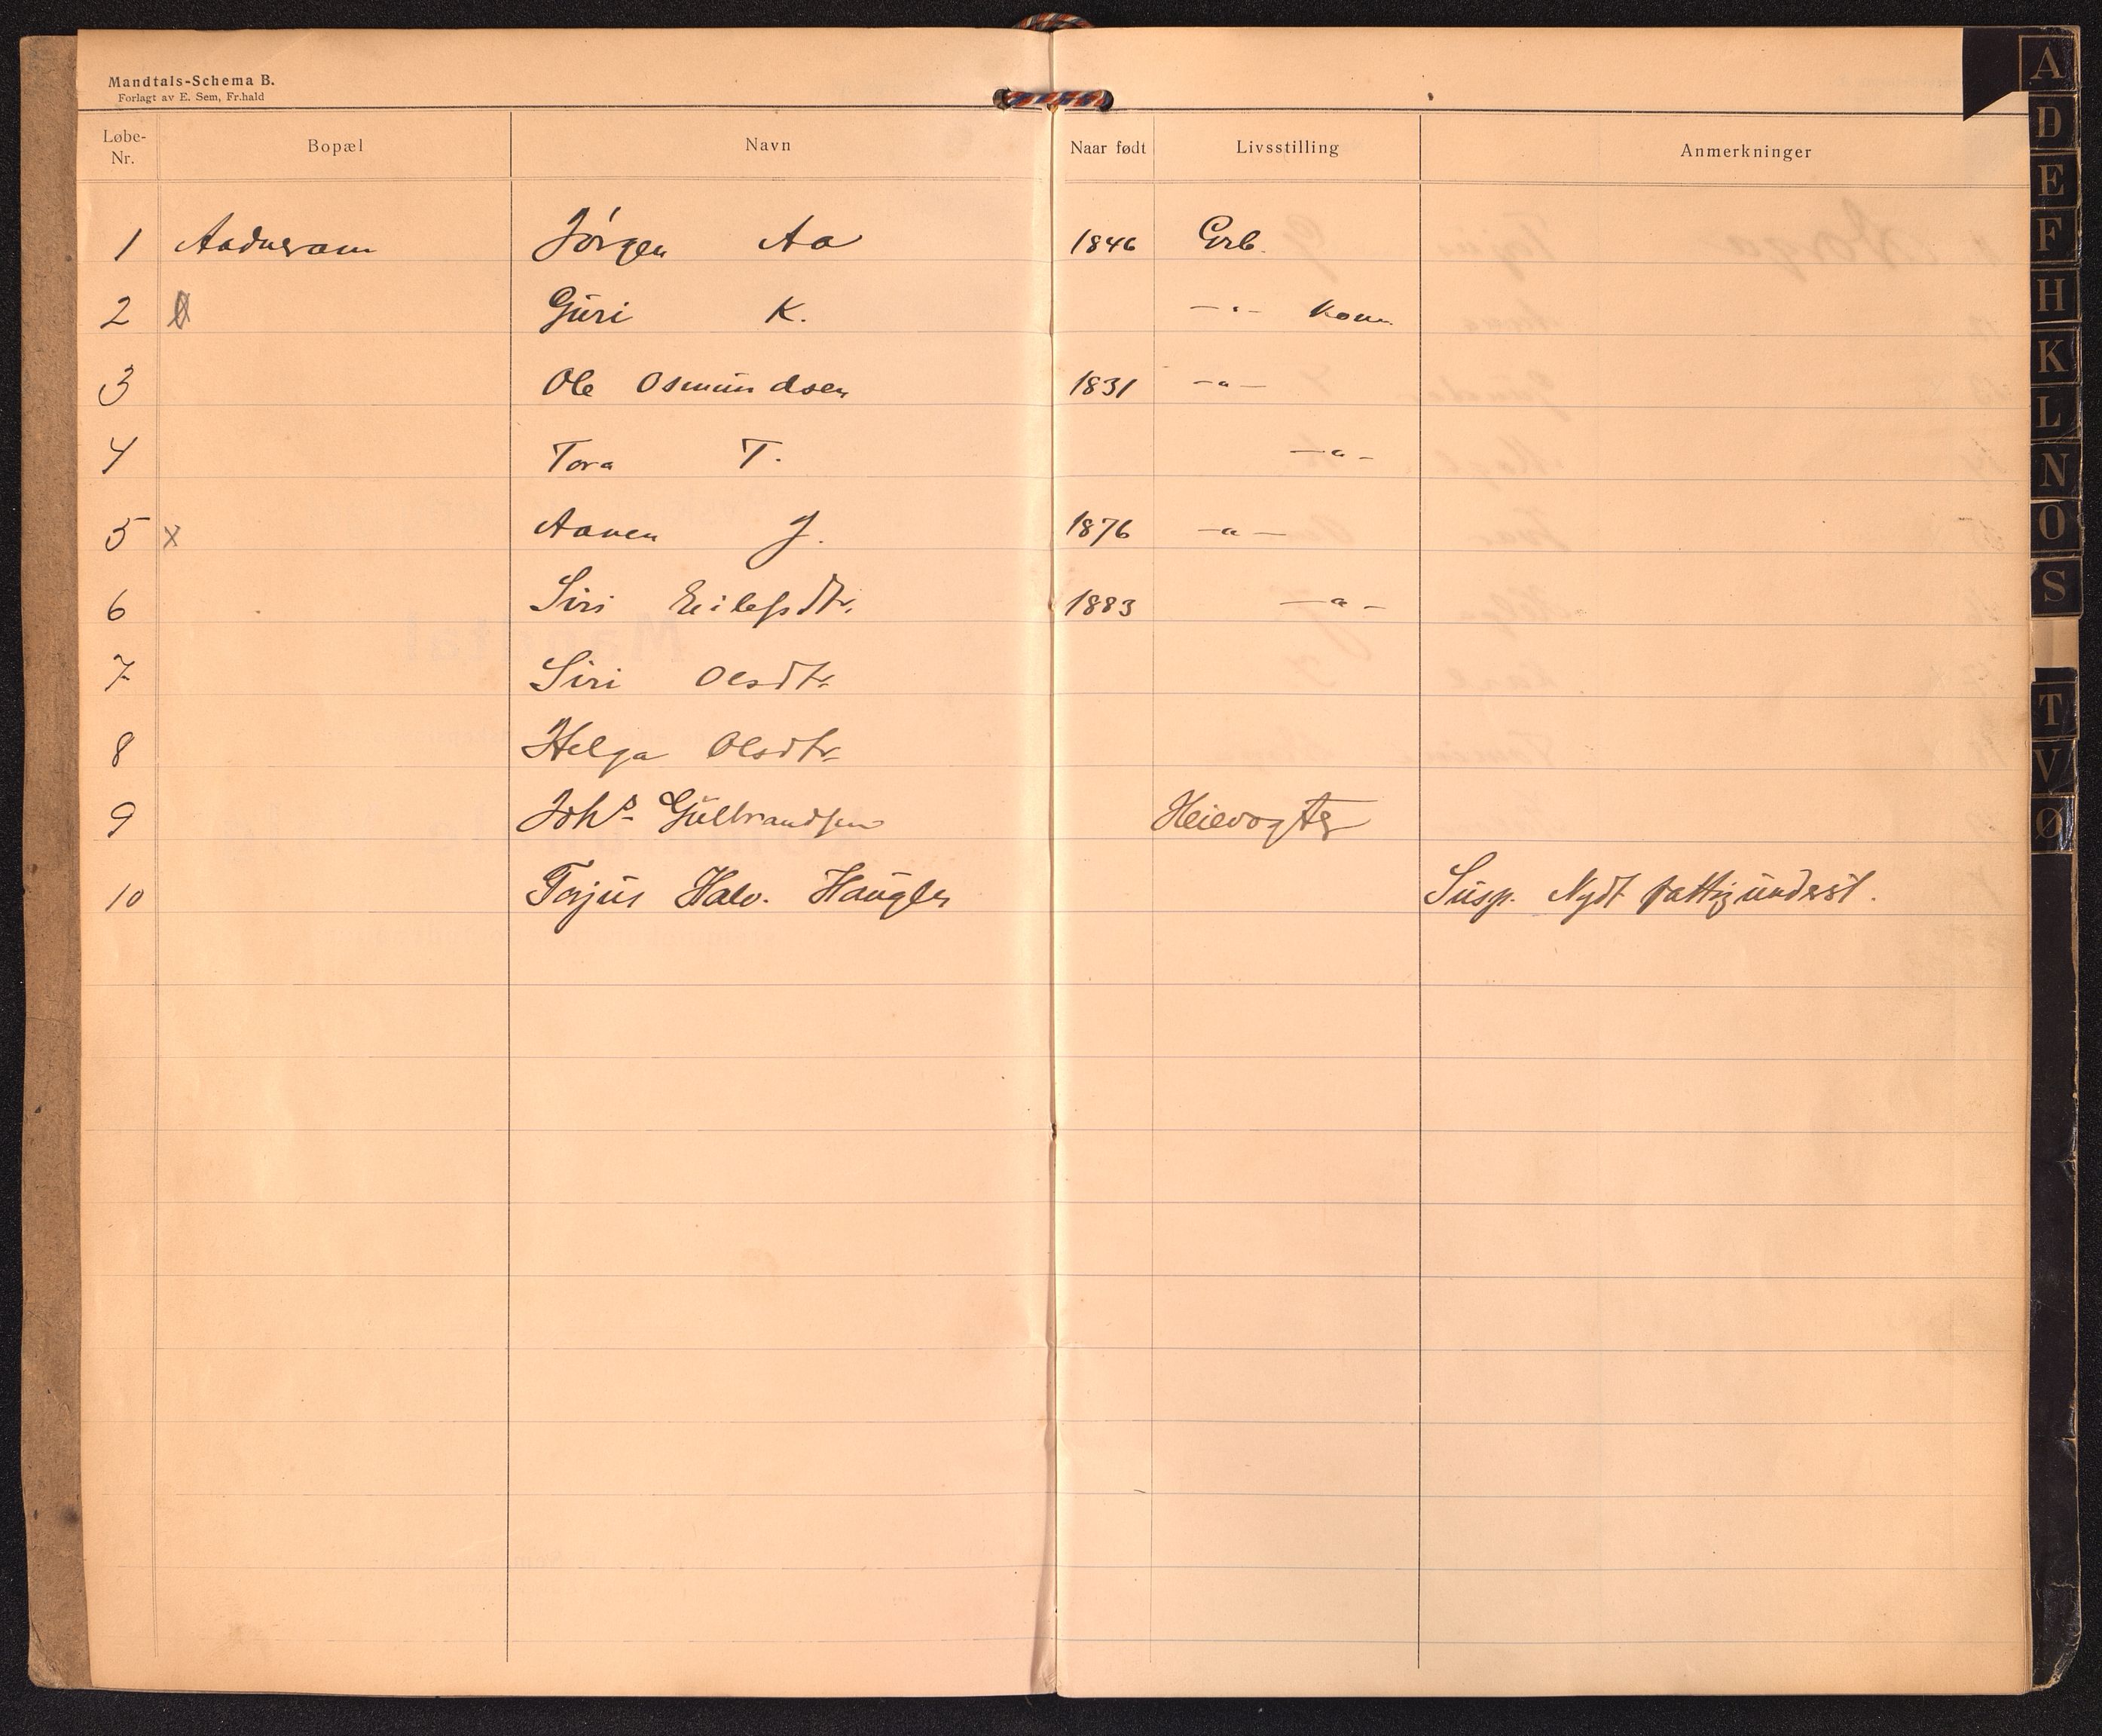 Mandtals-Schema B.
Forlagt av E. Sem, Fr.hald
Løbe-Nr. Bopæl Navn Naar født Livsstilling Anmerkninger
1 Aadneram Jørgen Aa 1846 Grb.
2 Guri K. —"— kone
3 Ole Osmundsen 1831 —"—
4 Tora T. —"—
5 x Aanen J. 1876 —"—
6 Siri Eilefsdtr. 1883 —"—
7 Siri Olsdtr.
8 Helga Olsdtr.
9 Johs. Gulbrandsen Heievogter
10 Torjus Halv. Haugler Susp. Nydt fattigunderst.
A
D
E
F
H
K
L
N
O
S
T
V
Ø